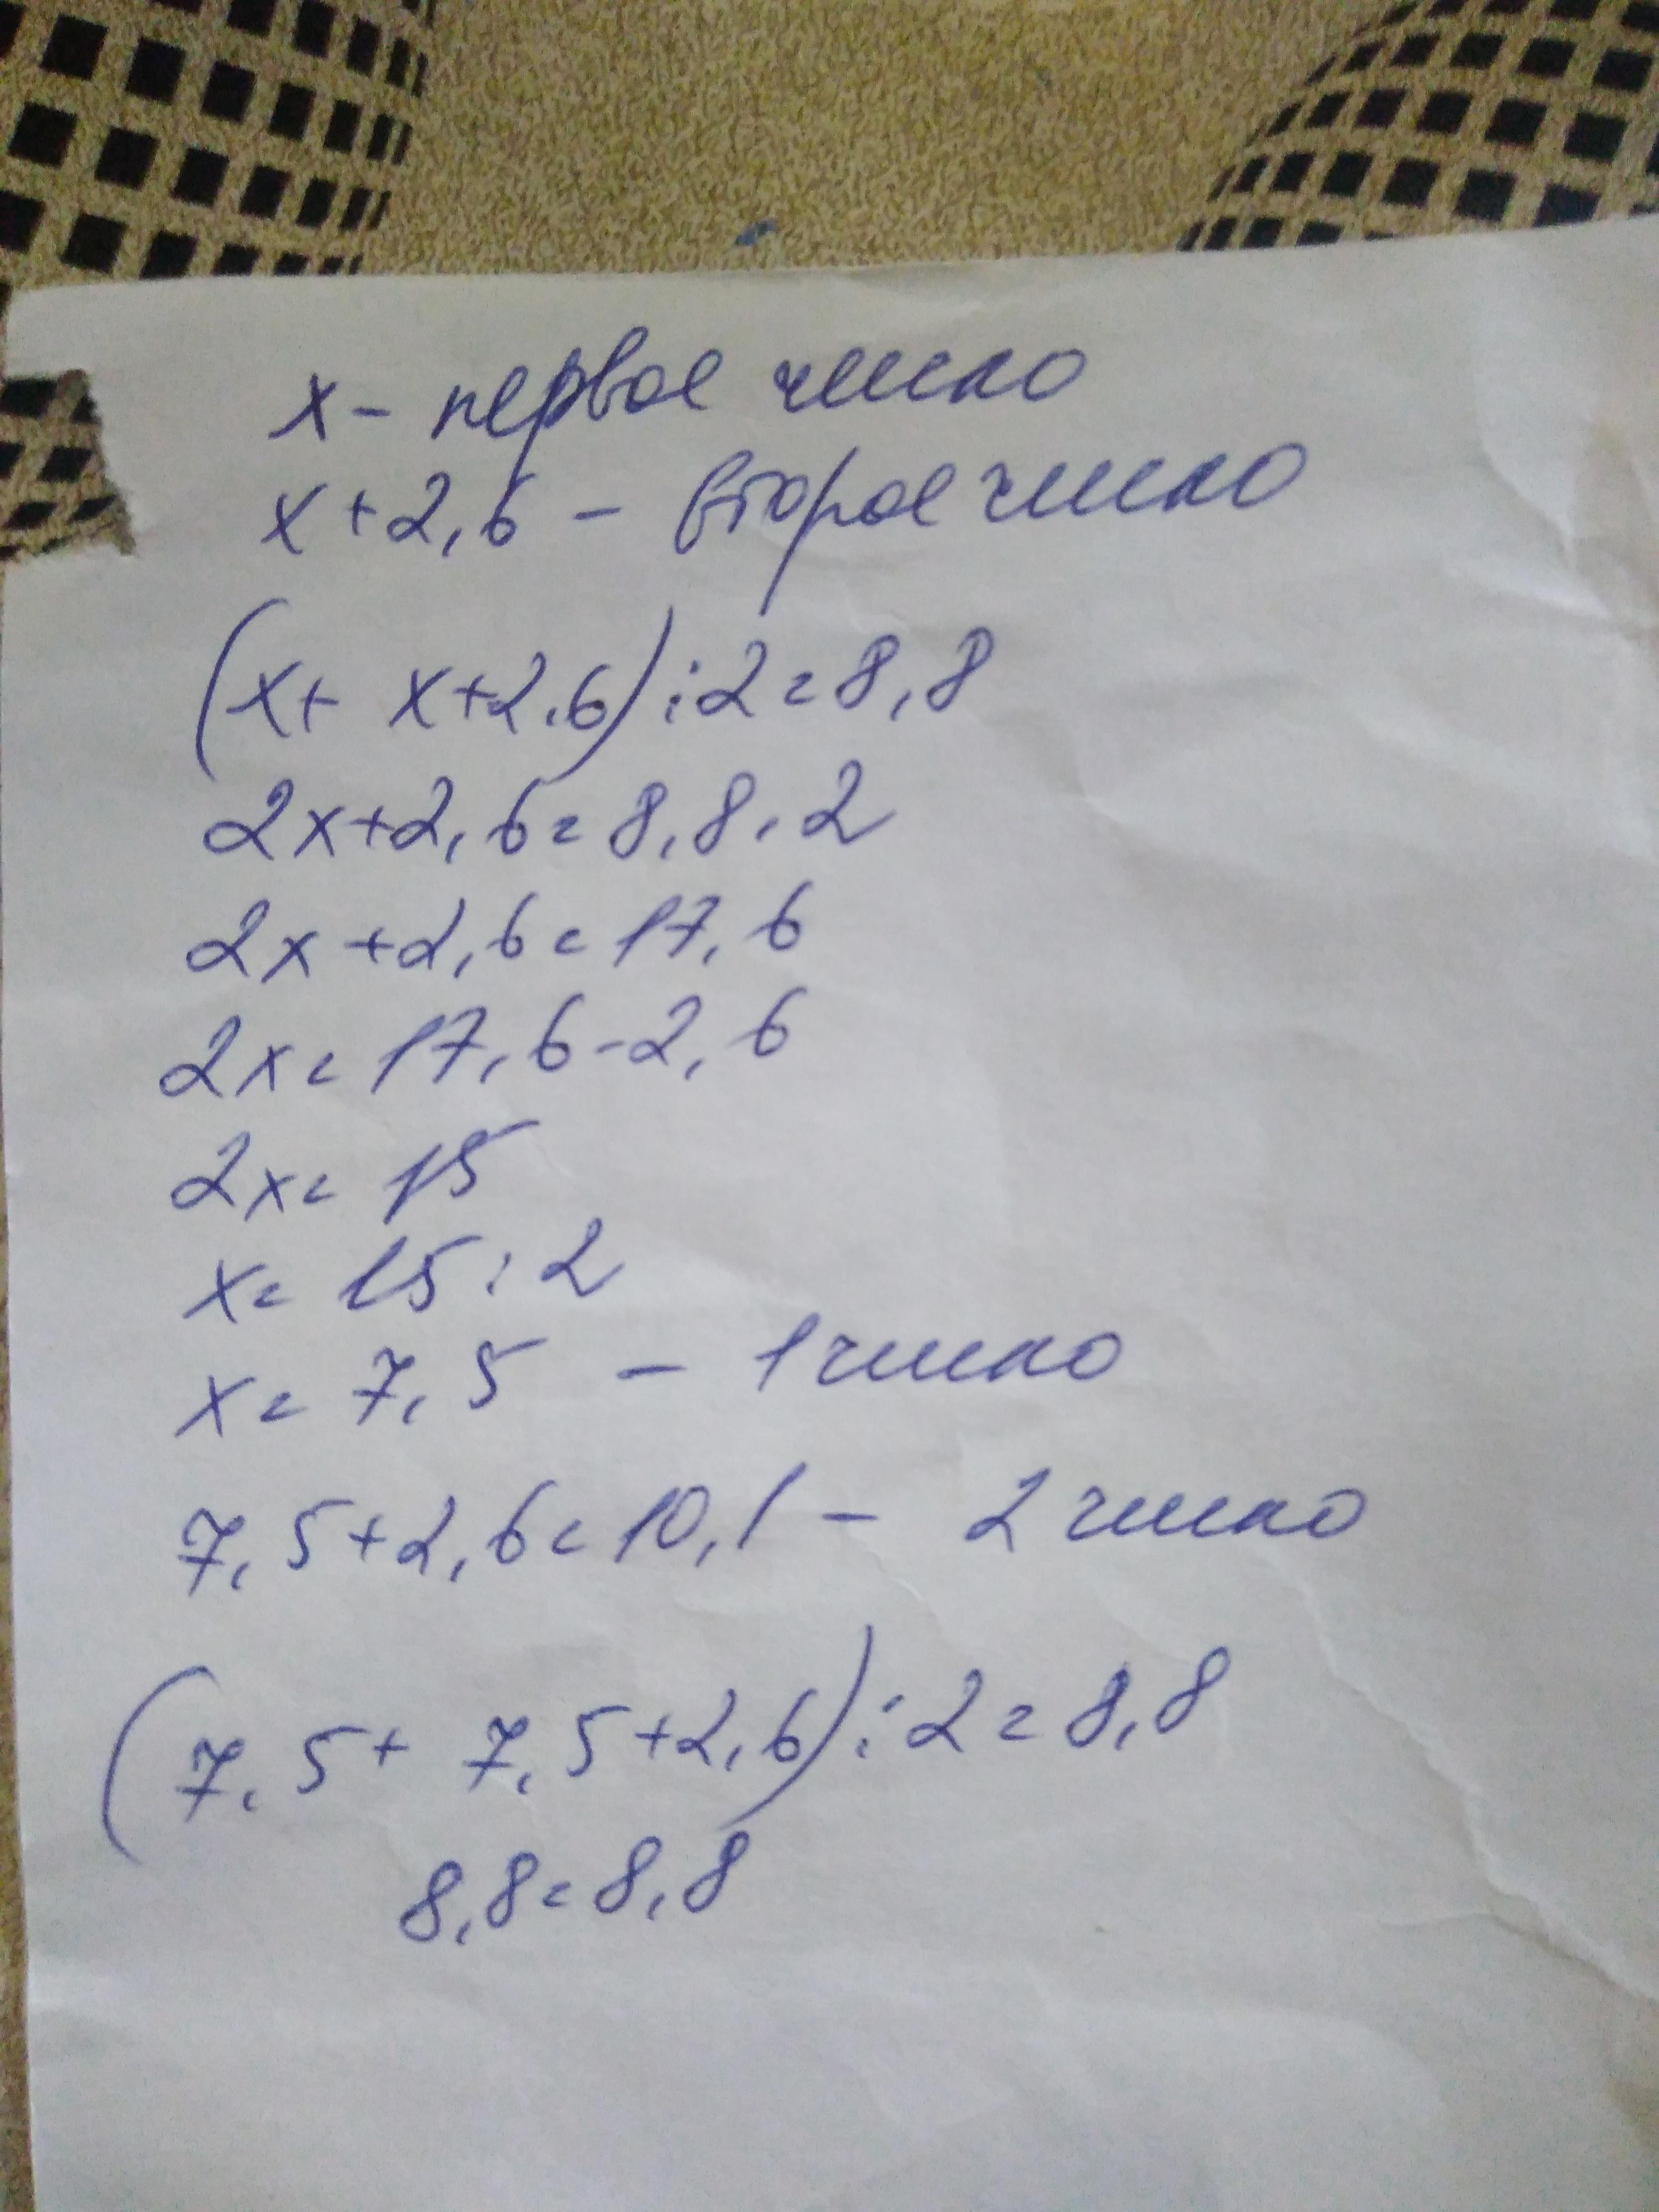 x - первое число
x+2,6 - второе число
(x+ x+2.6):2=8,8
2x+2,6=8,8·2
2x+2,6=17,6
2x=17,6-2,6
2x=15
x=15:2
x=7,5 - 1 число
7,5+2,6=10,1 - 2 число
(7,5+ 7,5+2,6):2=8,8
8,8=8,8